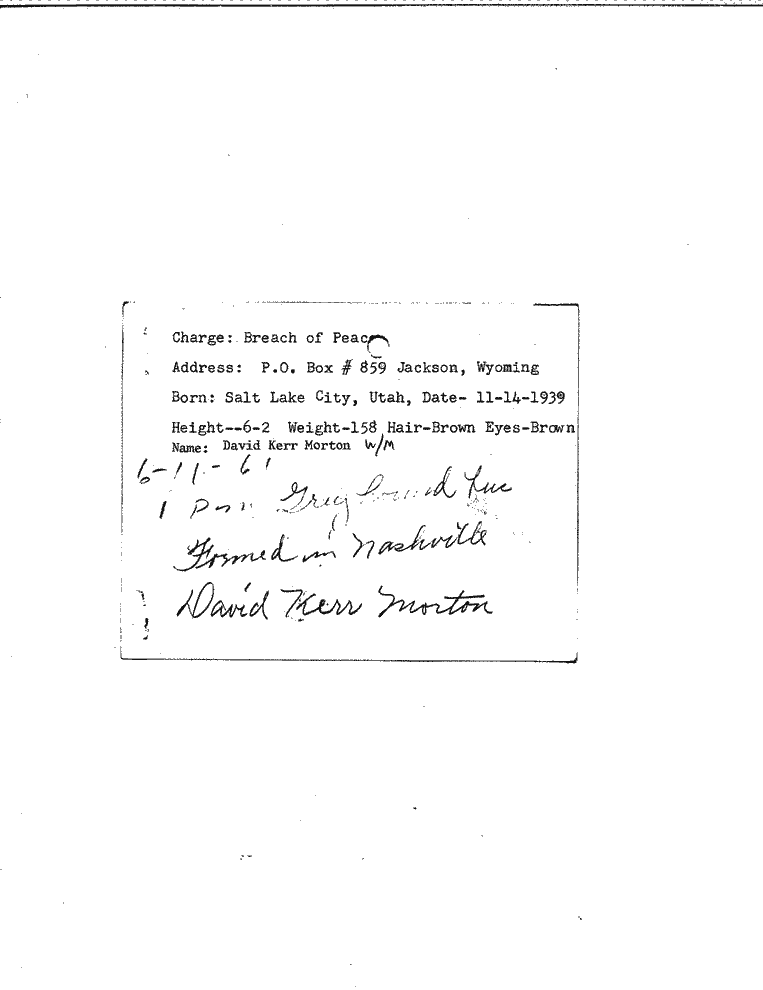 Charge: Breach of Peace
Address: P.O. Box # 859 Jackson, Wyoming
Born: Salt Lake City, Utah, Date- 11-14-1939
Height--6-2 Weight-158 Hair-Brown Eyes-Brown
Name: David Kerr Morton W/M
6-11-61
1 Greyhound
Formed in Nashville
David Kerr Morton